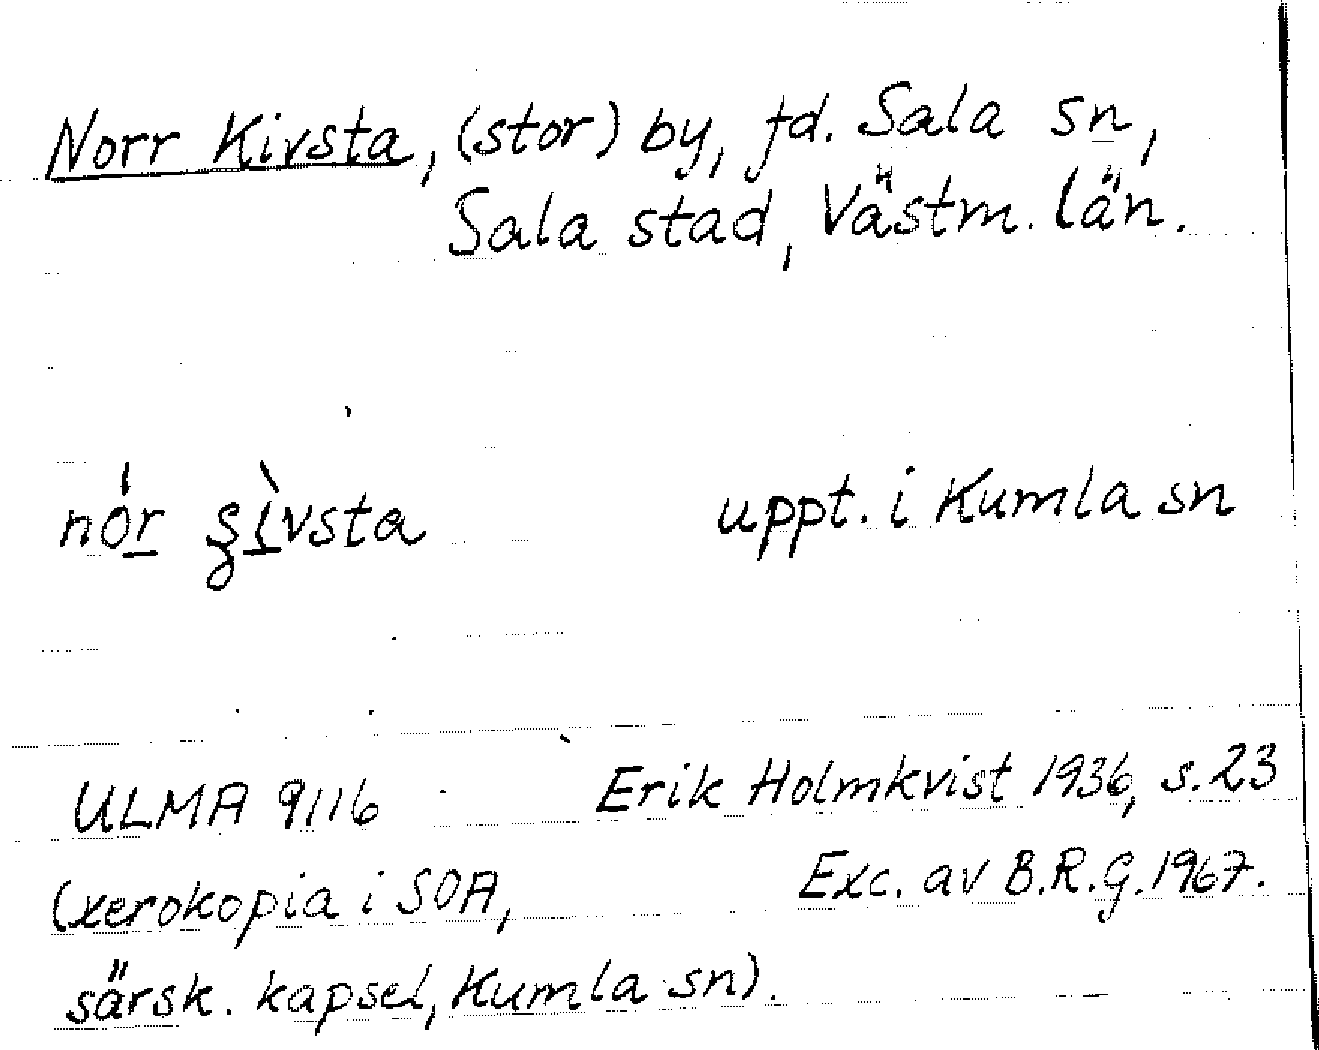 Norr Kivsta, (stor) by, fd. Sala sn,
Sala stad, Västm. län.
nór ʂìvsta uppt. i Kumla sn
ULMA 9116 Erik Holmkvist 1936, s. 23
(xerokopia i SOA, Exc. av B.R.G. 1967.
särsk. kapsel, Kumla sn).